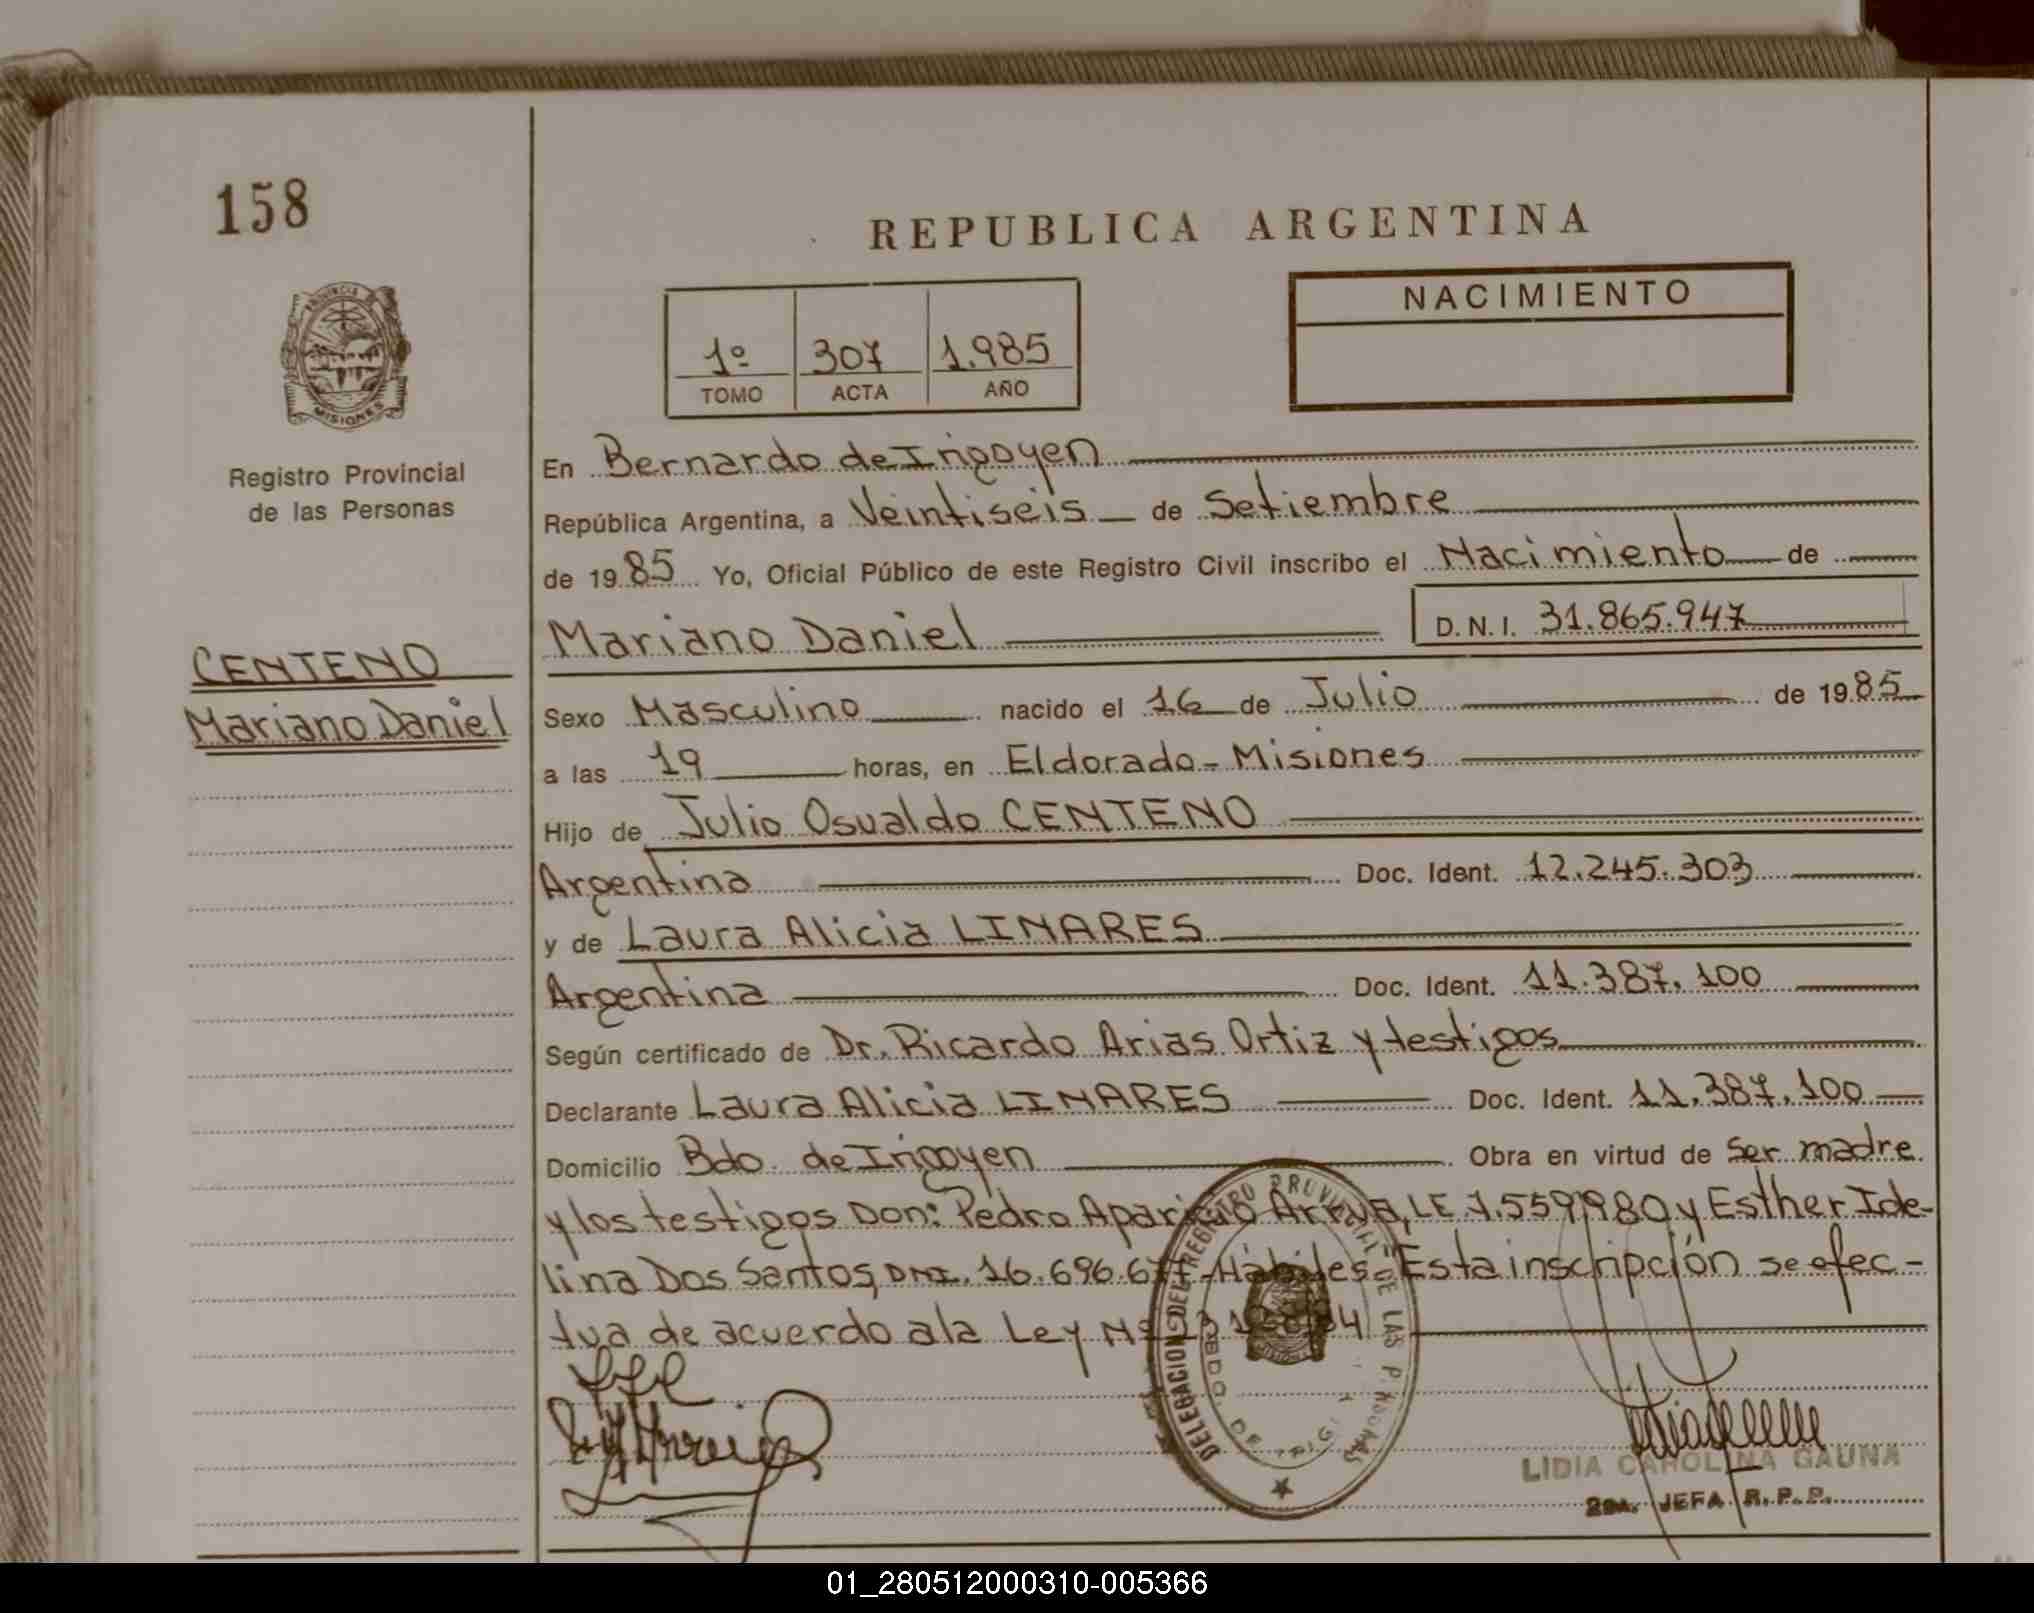 158
REPUBLICA ARGENTINA
NACIMIENTO
1º 307 1.985
TOMO ACTA AÑO
PROVINCIA
MISIONES
Registro Provincial
de las Personas
CENTENO
Mariano Daniel
En Bernardo de Irigoyen
República Argentina, a Veintiseis de Setiembre
de 1985 Yo, Oficial Público de este Registro Civil inscribo el Nacimiento de
Mariano Daniel D.N.I. 31.865.947
Sexo Masculino nacido el 16 de Julio de 1985
a las 19 horas, en Eldorado-Misiones
Hijo de Julio Osvaldo CENTENO
Argentina Doc. Ident. 12.245.303
y de Laura Alicia LINARES
Argentina Doc. Ident. 11.387.100
Según certificado de Dr. Ricardo Arias Ortiz y testigos
Declarante Laura Alicia LINARES Doc. Ident. 11.387.100
Domicilio Bdo. de Irigoyen Obra en virtud de Ser madre
y los testigos Don: Pedro Aparicio LE 7.559.980 y Esther Ide-
lina Dos Santos, DNI. 16.696.677-Hábiles-"Esta inscripción se efec-
tua de acuerdo a la Ley Nº
DELEGACION DEL REGISTRO PROVINCIAL DE LAS PERSONAS
BDO. DE IRIG.
LIDIA CAROLINA GAUNA
2da. JEFA R.P.P.
01_280512000310-005366